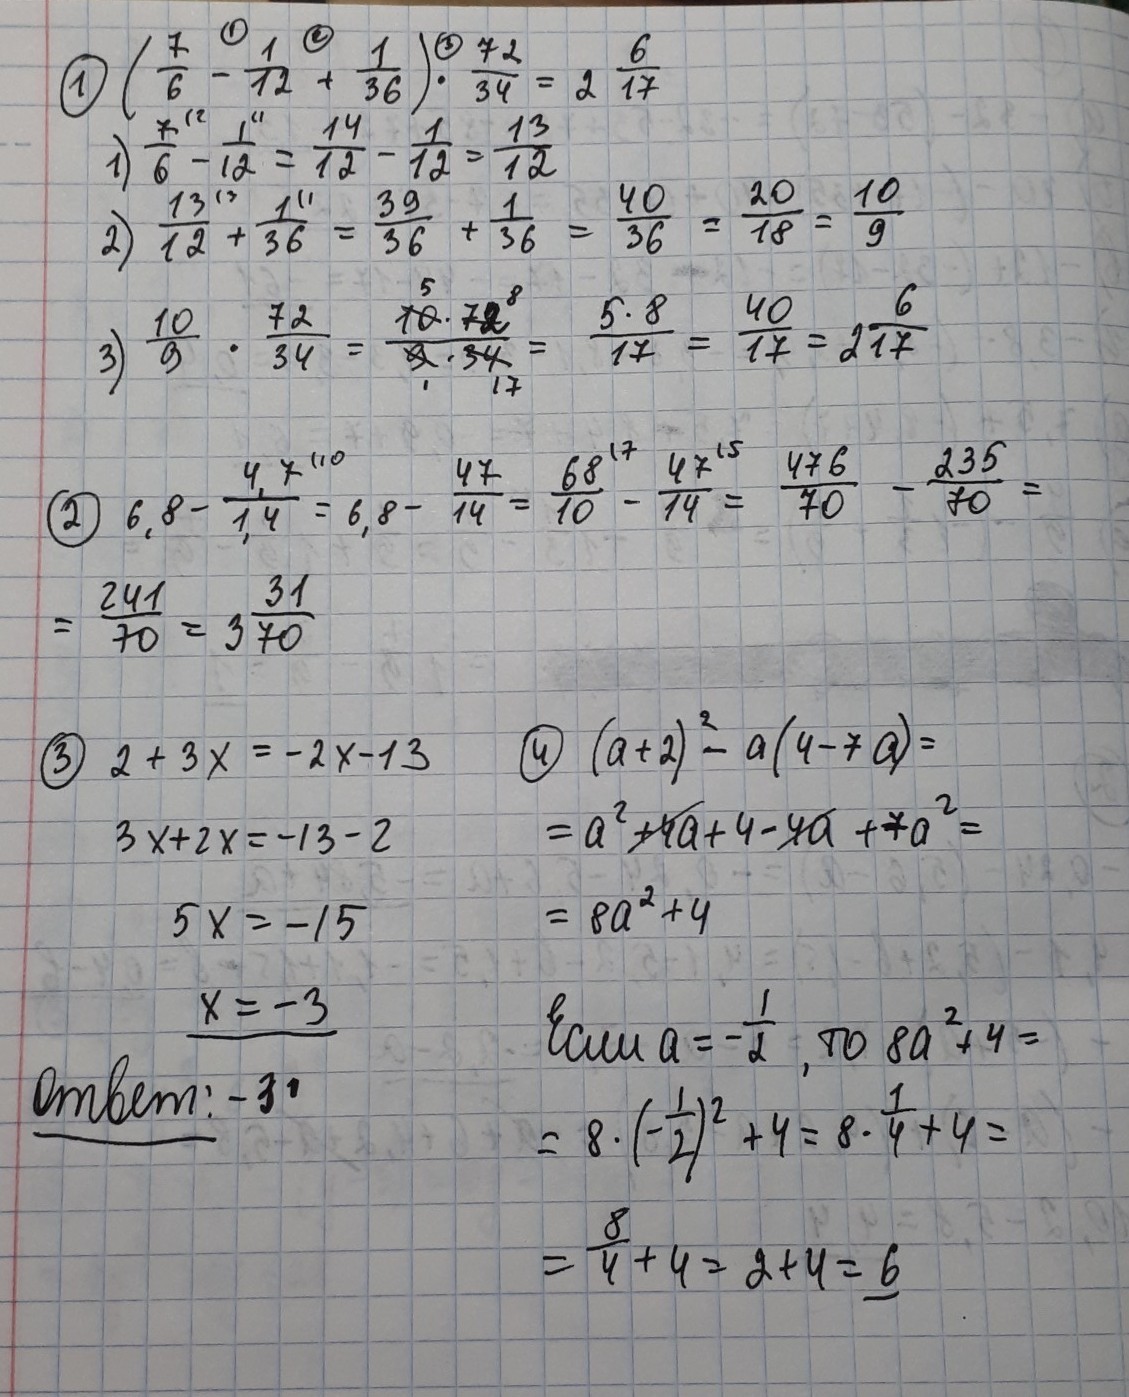 ① (7/6 - 1/12 + 1/36) · 72/34 = 2 6/17
1) 7/6 - 1/12 = 14/12 - 1/12 = 13/12
2) 13/12 + 1/36 = 39/36 + 1/36 = 40/36 = 20/18 = 10/9
3) 10/9 · 72/34 = 10·72/9·34 = 5·8/17 = 40/17 = 2 6/17
② 6,8 - 4,7/1,4 = 6,8 - 47/14 = 68/10 - 47/14 = 476/70 - 235/70 =
= 241/70 = 3 31/70
③ 2 + 3x = -2x - 13
3x + 2x = -13 - 2
5x = -15
x = -3
Ответ: -3.
④ (a+2)² - a(4-7a) =
= a² + 4a + 4 - 4a + 7a² =
= 8a² + 4
Если a = -1/2, то 8a² + 4 =
= 8·(-1/2)² + 4 = 8·1/4 + 4 =
= 8/4 + 4 = 2 + 4 = 6